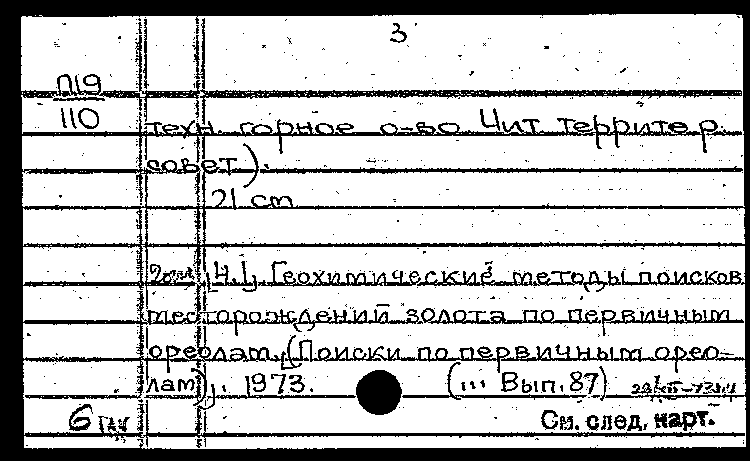 3
П19
110
техн. горное о-во. Чит. территор.
совет).
21 cm
Ч.1. Геохимические методы поисков
месторождений золота по первичным
ореолам. (Поиски по первичным орео-
лам). 1973. (... Вып. 87)
6
См. след. карт.